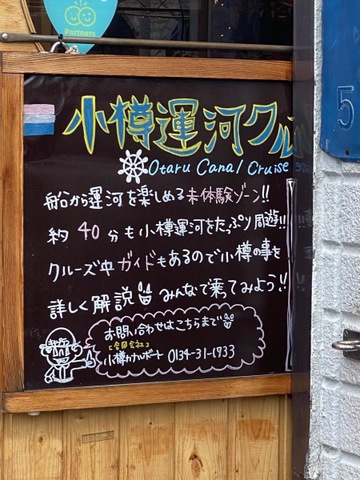 Partners
小樽運河クル
Otaru Canal Cruise
船から運河を楽しめる未体験ゾーン!!
約40分も小樽運河をたっぷり周遊!!
クルーズ中ガイドもあるので小樽の事を
詳しく解説 みんなで乗てみよう!!
お問い合わせはこちらまで
小樽カナルボート 0134-31-1933
5